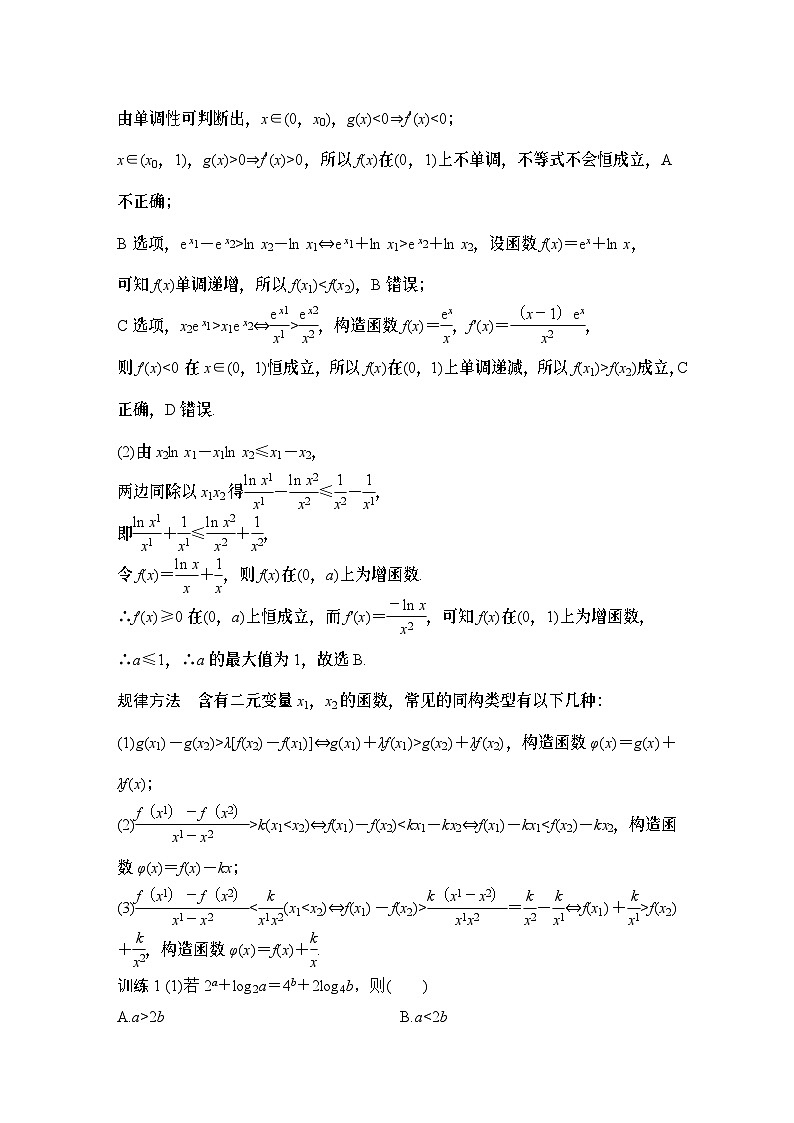 由单调性可判断出，x∈(0，x₀)，g(x)<0⇒f′(x)<0；
x∈(x₀，1)，g(x)>0⇒f′(x)>0，所以 f(x)在(0，1)上不单调，不等式不会恒成立，A
不正确；
B 选项，e^{x1}－e^{x2}>ln x₂－ln x₁⇔e^{x1}＋ln x₁>e^{x2}＋ln x₂，设函数 f(x)＝eˣ＋ln x，
可知 f(x)单调递增，所以 f(x₁)<f(x₂)，B 错误；
C 选项，x₂e^{x1}>x₁e^{x2}⇔\frac{e^{x1}}{x1}>\frac{e^{x2}}{x2}，构造函数 f(x)＝\frac{e^x}{x}，f′(x)＝\frac{（x－1）e^x}{x^2}，
则 f′(x)<0 在 x∈(0，1)恒成立，所以 f(x)在(0，1)上单调递减，所以 f(x₁)>f(x₂)成立，C
正确，D 错误.
(2)由 x₂ln x₁－x₁ln x₂≤x₁－x₂，
两边同除以 x₁x₂得\frac{ln x1}{x1}－\frac{ln x2}{x2}≤\frac{1}{x2}－\frac{1}{x1}，
即\frac{ln x1}{x1}＋\frac{1}{x1}≤\frac{ln x2}{x2}＋\frac{1}{x2}，
令 f(x)＝\frac{ln x}{x}＋\frac{1}{x}，则 f(x)在(0，a)上为增函数.
∴f′(x)≥0 在(0，a)上恒成立，而 f′(x)＝\frac{－ln x}{x^2}，可知 f(x)在(0，1)上为增函数，
∴a≤1，∴a 的最大值为 1，故选 B.
规律方法　含有二元变量 x₁，x₂的函数，常见的同构类型有以下几种：
(1)g(x₁)－g(x₂)>λ[f(x₂)－f(x₁)]⇔g(x₁)＋λf(x₁)>g(x₂)＋λf(x₂)，构造函数 φ(x)＝g(x)＋
λf(x)；
(2)\frac{f（x1）－f（x2）}{x1－x2}>k(x₁<x₂)⇔f(x₁)－f(x₂)<kx₁－kx₂⇔f(x₁)－kx₁<f(x₂)－kx₂，构造函
数 φ(x)＝f(x)－kx；
(3)\frac{f（x1）－f（x2）}{x1－x2}<\frac{k}{x1x2}(x₁<x₂)⇔f(x₁)－f(x₂)>\frac{k（x1－x2）}{x1x2}＝\frac{k}{x2}－\frac{k}{x1}⇔f(x₁)＋\frac{k}{x1}>f(x₂)
＋\frac{k}{x2}，构造函数 φ(x)＝f(x)＋\frac{k}{x}.
训练 1 (1)若 2ᵃ＋log₂a＝4ᵇ＋2log₄b，则(　　)
A.a>2b　　B.a<2b